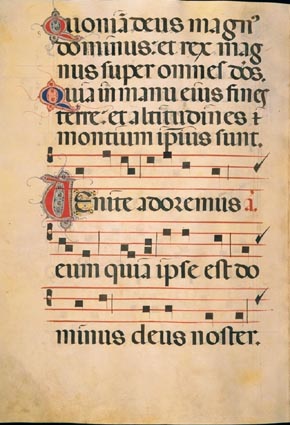 Quoniā deus magn⁹
dominus: et rex mag
nus super omnes dōs.
Quia in manu eius fines
terre: et altitudines ⁊
montium ip̄ius sunt.
Venite adoremus ā.
eum quia ipse est do
minus deus noster.